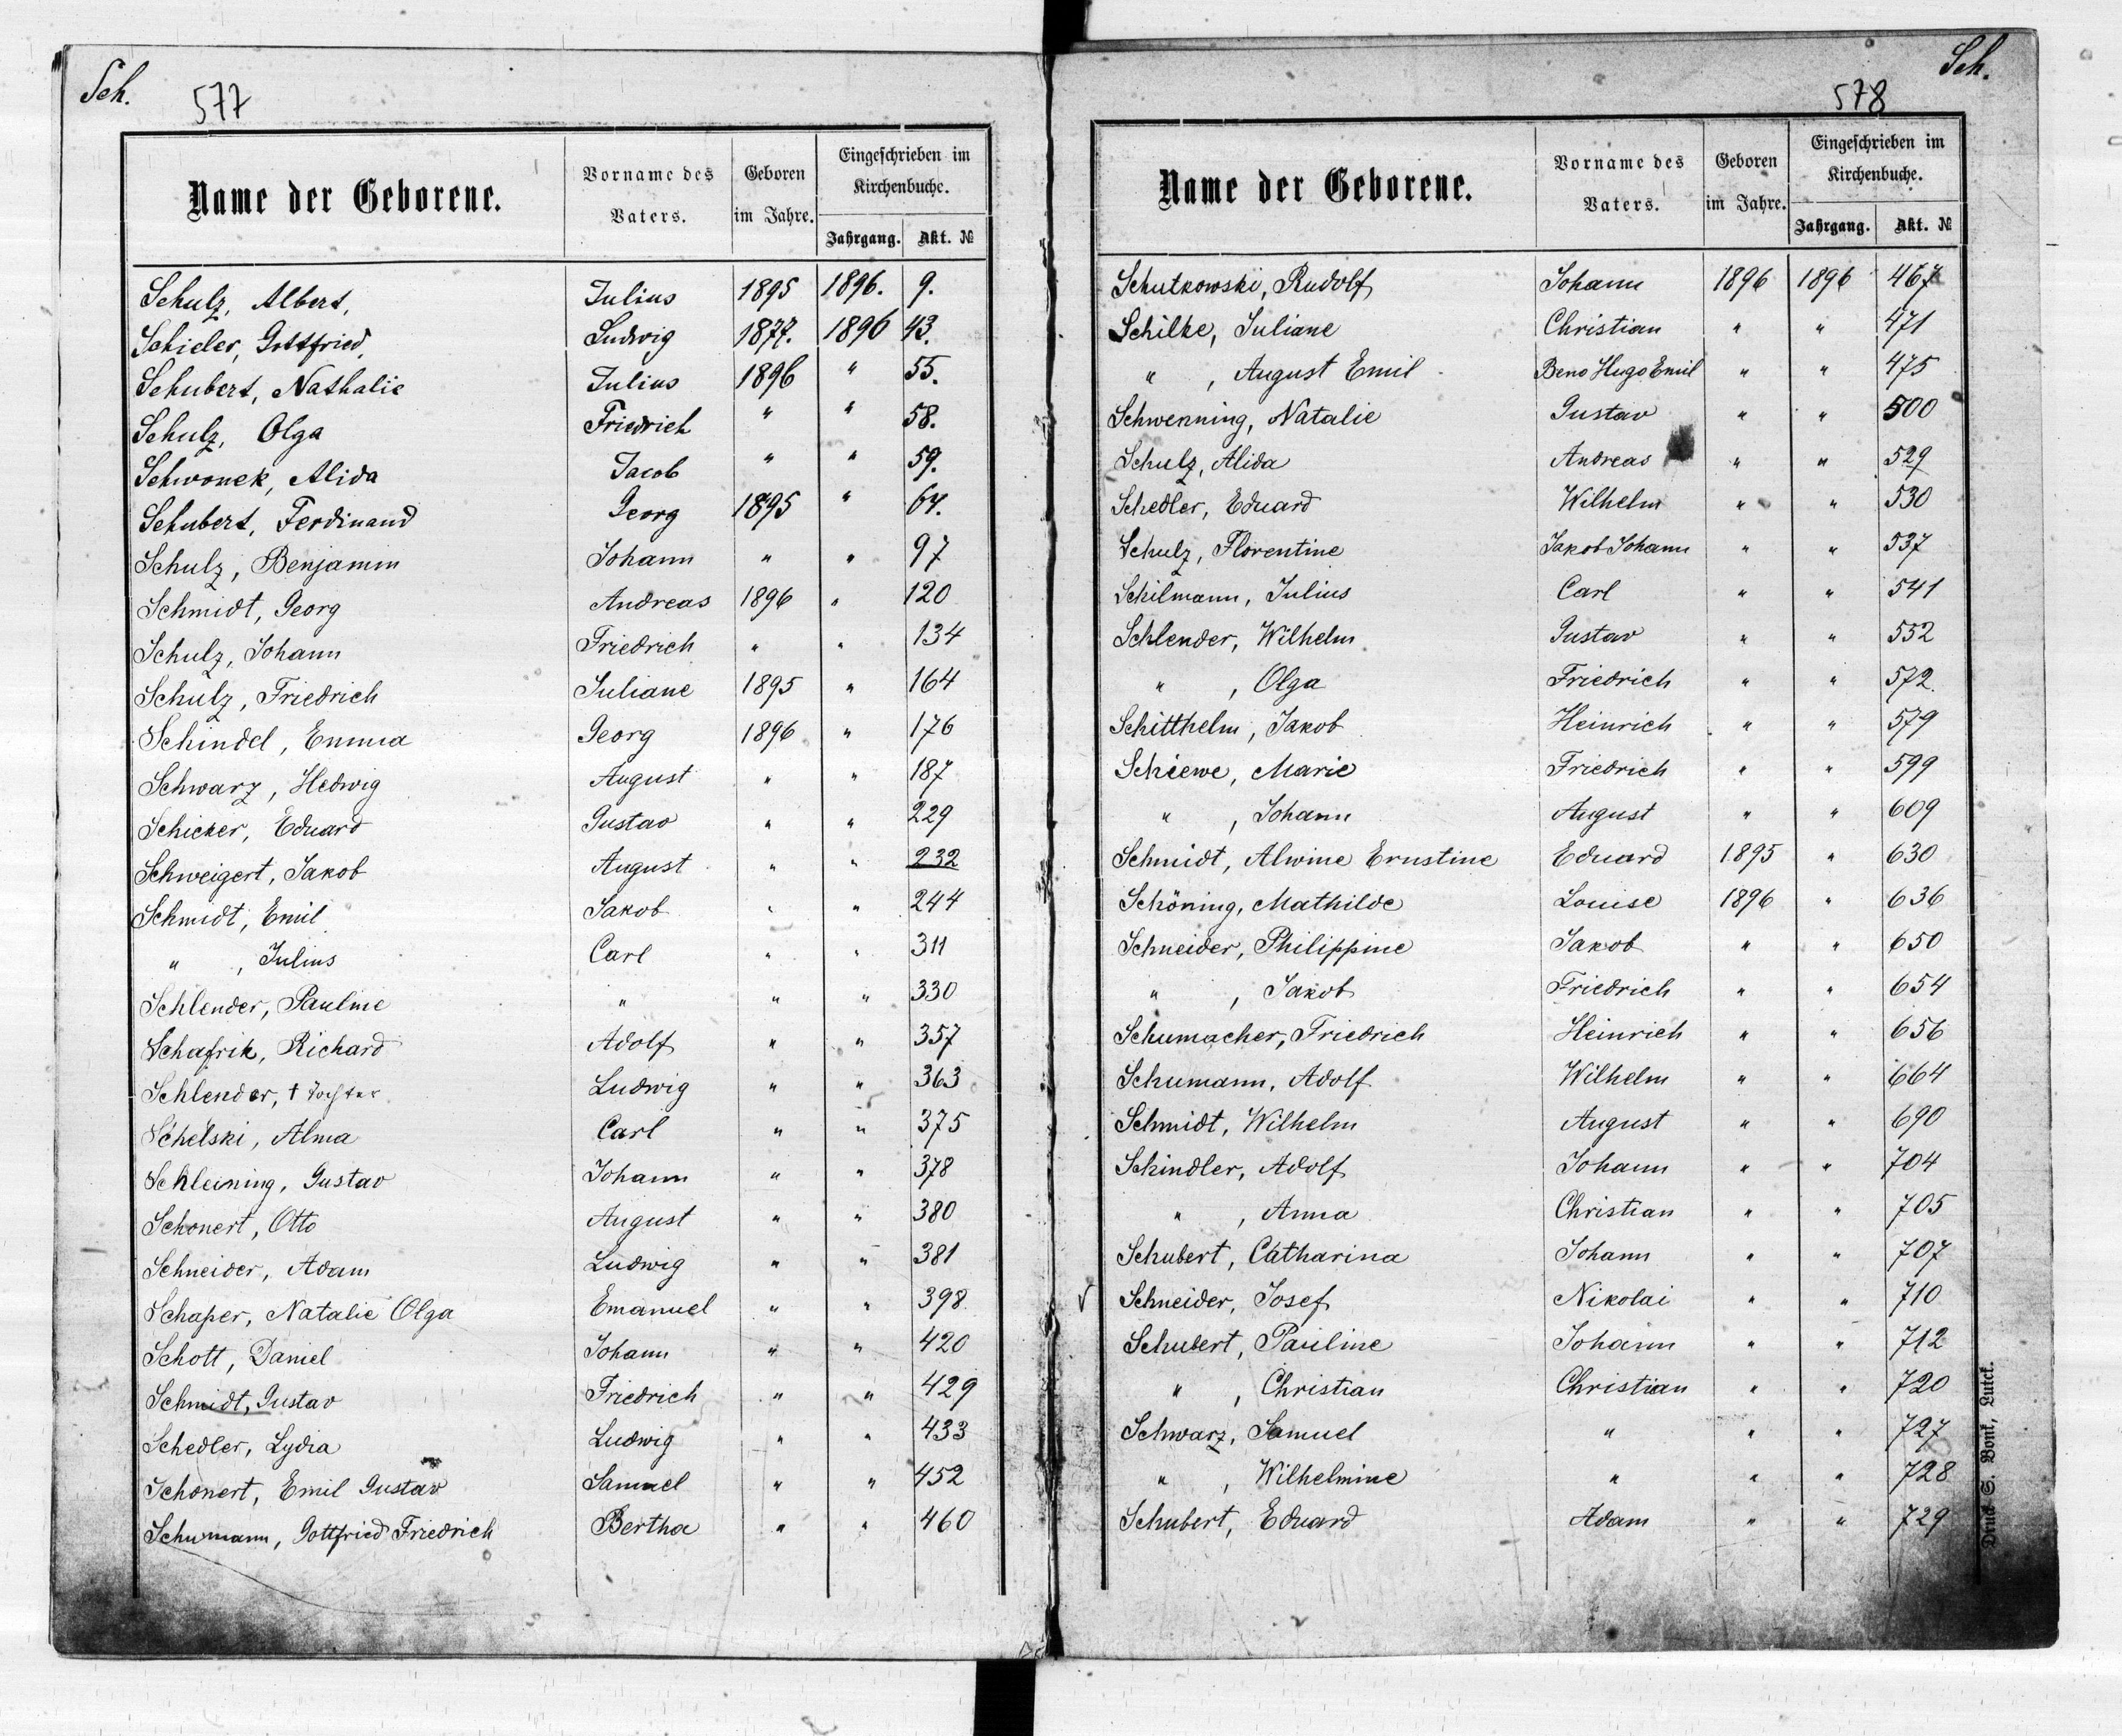 Sch.
577
Name der Geborene. Vorname des Vaters. Geboren im Jahre. Eingeschrieben im Kirchenbuche. Jahrgang. Akt. №
Schulz, Albert, Julius 1895 1896. 9.
Schieler, Gottfried, Ludwig 1877. 1896 43.
Schubert, Nathalie Julius 1896 " 55.
Schulz, Olga Friedrich " " 58.
Schwonek, Alida Jacob " " 59.
Schubert, Ferdinand Georg 1895 " 64.
Schulz, Benjamin Johann " " 97
Schmidt, Georg Andreas 1896 " 120
Schulz, Johann Friedrich " " 134
Schulz, Friedrich Juliane 1895 " 164
Schindel, Emma Georg 1896 " 176
Schwarz, Hedwig August " " 187
Schicker, Eduard Gustav " " 229
Schweigert, Jakob August " " 232
Schmidt, Emil Jakob " " 244
" , Julius Carl " " 311
Schlender, Pauline " " " 330
Schafrik, Richard Adolf " " 357
Schlender, † Tochter Ludwig " " 363
Schelski, Alma Carl " " 375
Schleining, Gustav Johann " " 378
Schonert, Otto August " " 380
Schneider, Adam Ludwig " " 381
Schaper, Natalie Olga Emanuel " " 398
Schott, Daniel Johann " " 420
Schmidt, Gustav Friedrich " " 429
Schedler, Lydia Ludwig " " 433
Schonert, Emil Gustav Samuel " " 452
Schumann, Gottfried Friedrich Bertha " " 460
Sch.
578
Name der Geborene. Vorname des Vaters. Geboren im Jahre. Eingeschrieben im Kirchenbuche. Jahrgang. Akt. №
Schutkowski, Rudolf Johann 1896 1896 467
Schilke, Juliane Christian " " 471
" , August Emil Beno Hugo Emil " " 475
Schwenning, Natalie Gustav " " 500
Schulz, Alida Andreas " " 529
Schedler, Eduard Wilhelm " " 530
Schulz, Florentine Jakob Johann " " 537
Schilmann, Julius Carl " " 541
Schlender, Wilhelm Gustav " " 552
" , Olga Friedrich " " 572.
Schitthelm, Jakob Heinrich " " 579
Schiewe, Marie Friedrich " " 599
" , Johann August " " 609
Schmidt, Alwine Ernstine Eduard 1895 " 630
Schöning, Mathilde Louise 1896 " 636
Schneider, Philippine Jakob " " 650
" , Jakob Friedrich " " 654
Schumacher, Friedrich Heinrich " " 656
Schumann, Adolf Wilhelm " " 664
Schmidt, Wilhelm August " " 690
Schindler, Adolf Johann " " 704
" , Anna Christian " " 705
Schubert, Catharina Johann " " 707
Schneider, Josef Nikolai " " 710
Schubert, Pauline Johann " " 712
" , Christian Christian " " 720
Schwarz, Samuel " " " 727
" , Wilhelmine " " " 728
Schubert, Eduard Adam " " 729
Druck S. Bonk, Lutck.